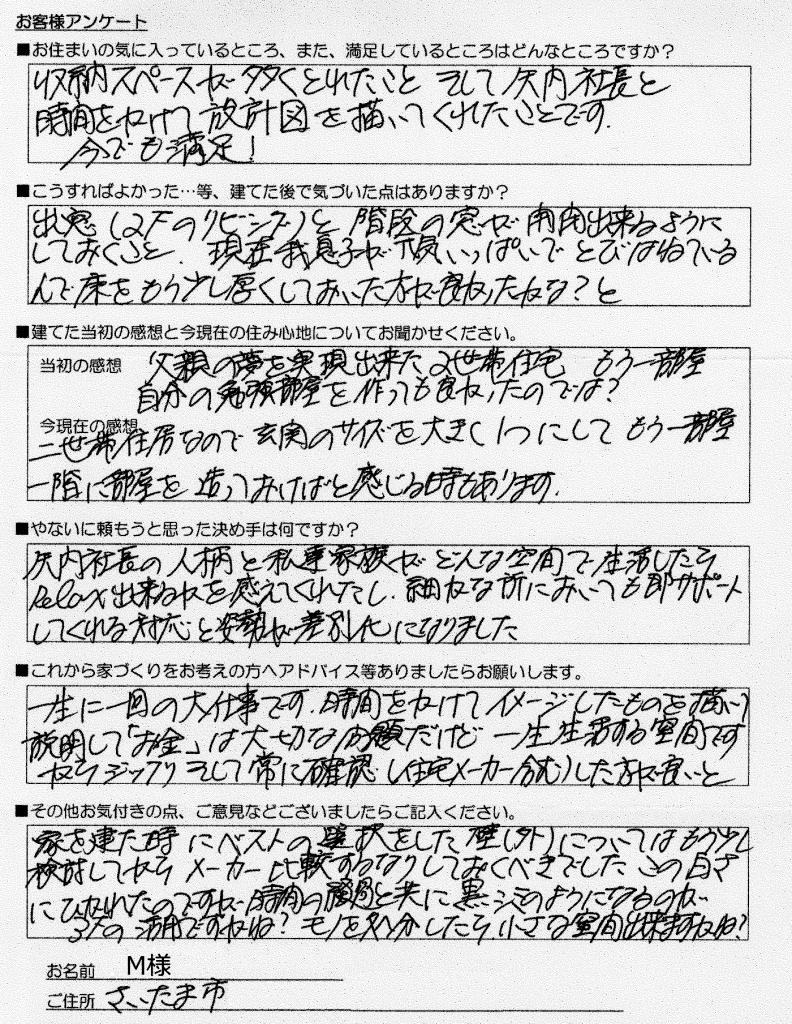 お客様アンケート
■お住まいの気に入っているところ、また、満足しているところはどんなところですか？
収納スペースが多くとれたこと そして矢内社長と
時間をかけて設計図を描いてくれたことです.
今でも満足!
■こうすればよかった…等、建てた後で気づいた点はありますか？
出窓(2Fのリビング)と階段の窓が開閉出来るように
しておくこと. 現在我息子が元気いっぱいでとびはねている
んで床をもう少し厚くしておいた方が良かったかな?と
■建てた当初の感想と今現在の住み心地についてお聞かせください。
当初の感想 父親の夢を実現出来た2世帯住宅 もう一部屋
自分の勉強部屋を作っても良かったのでは?
今現在の感想
二世帯住居なので玄関のサイズを大きく1つにしてもう一部屋
一階に部屋を造っておけばと感じる時もあります.
■やないに頼もうと思った決め手は何ですか？
矢内社長の人柄と私達家族がどんな空間で生活したら
Relax出来るかを考えてくれたし. 細かな所においても即サポート
してくれる対応と姿勢が差別化になりました
■これから家づくりをお考えの方へアドバイス等ありましたらお願いします。
一生に一回の大仕事です. 時間をかけてイメージしたものを描いて
説明して「お金」は大切なお題だけど一生生活する空間です
からジックリそして常に確認(住宅メーカー含む)した方が良いと
■その他お気付きの点、ご意見などございましたらご記入ください。
家を建た時にベストの選択をした壁(外)についてはもう少し
検討してからメーカー比較するなりしておくべきでした この白さ
にひかれたのですが時間の経過と共に黒ジミのようになるのが
3Fの活用ですかね? モノを処分したら. 小さな空間出来ますかね?
お名前 M様
ご住所 さいたま市